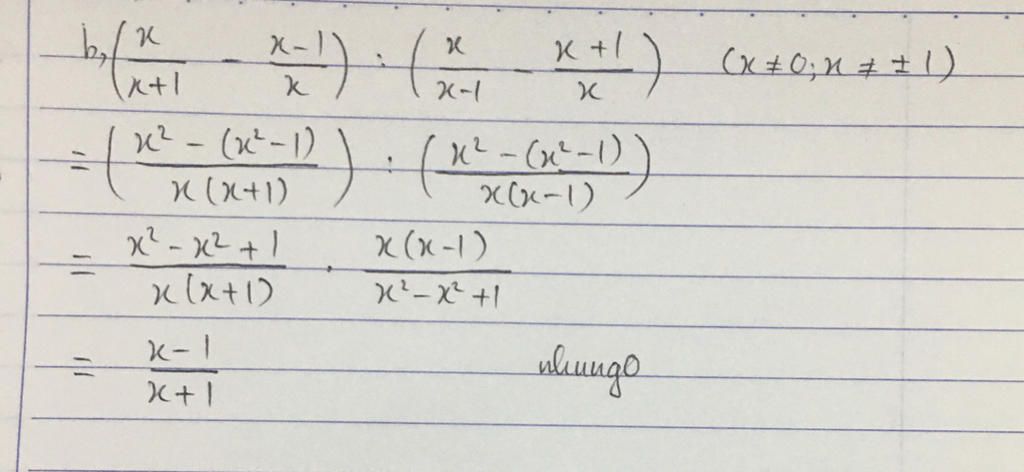 b, (x/(x+1) - (x-1)/x) : (x/(x-1) - (x+1)/x) (x ≠ 0; x ≠ ± 1)
= ((x² - (x²-1))/(x(x+1))) : ((x² - (x²-1))/(x(x-1)))
= (x² - x² + 1)/(x(x+1)) . (x(x-1))/(x² - x² + 1)
= (x-1)/(x+1) nhung0